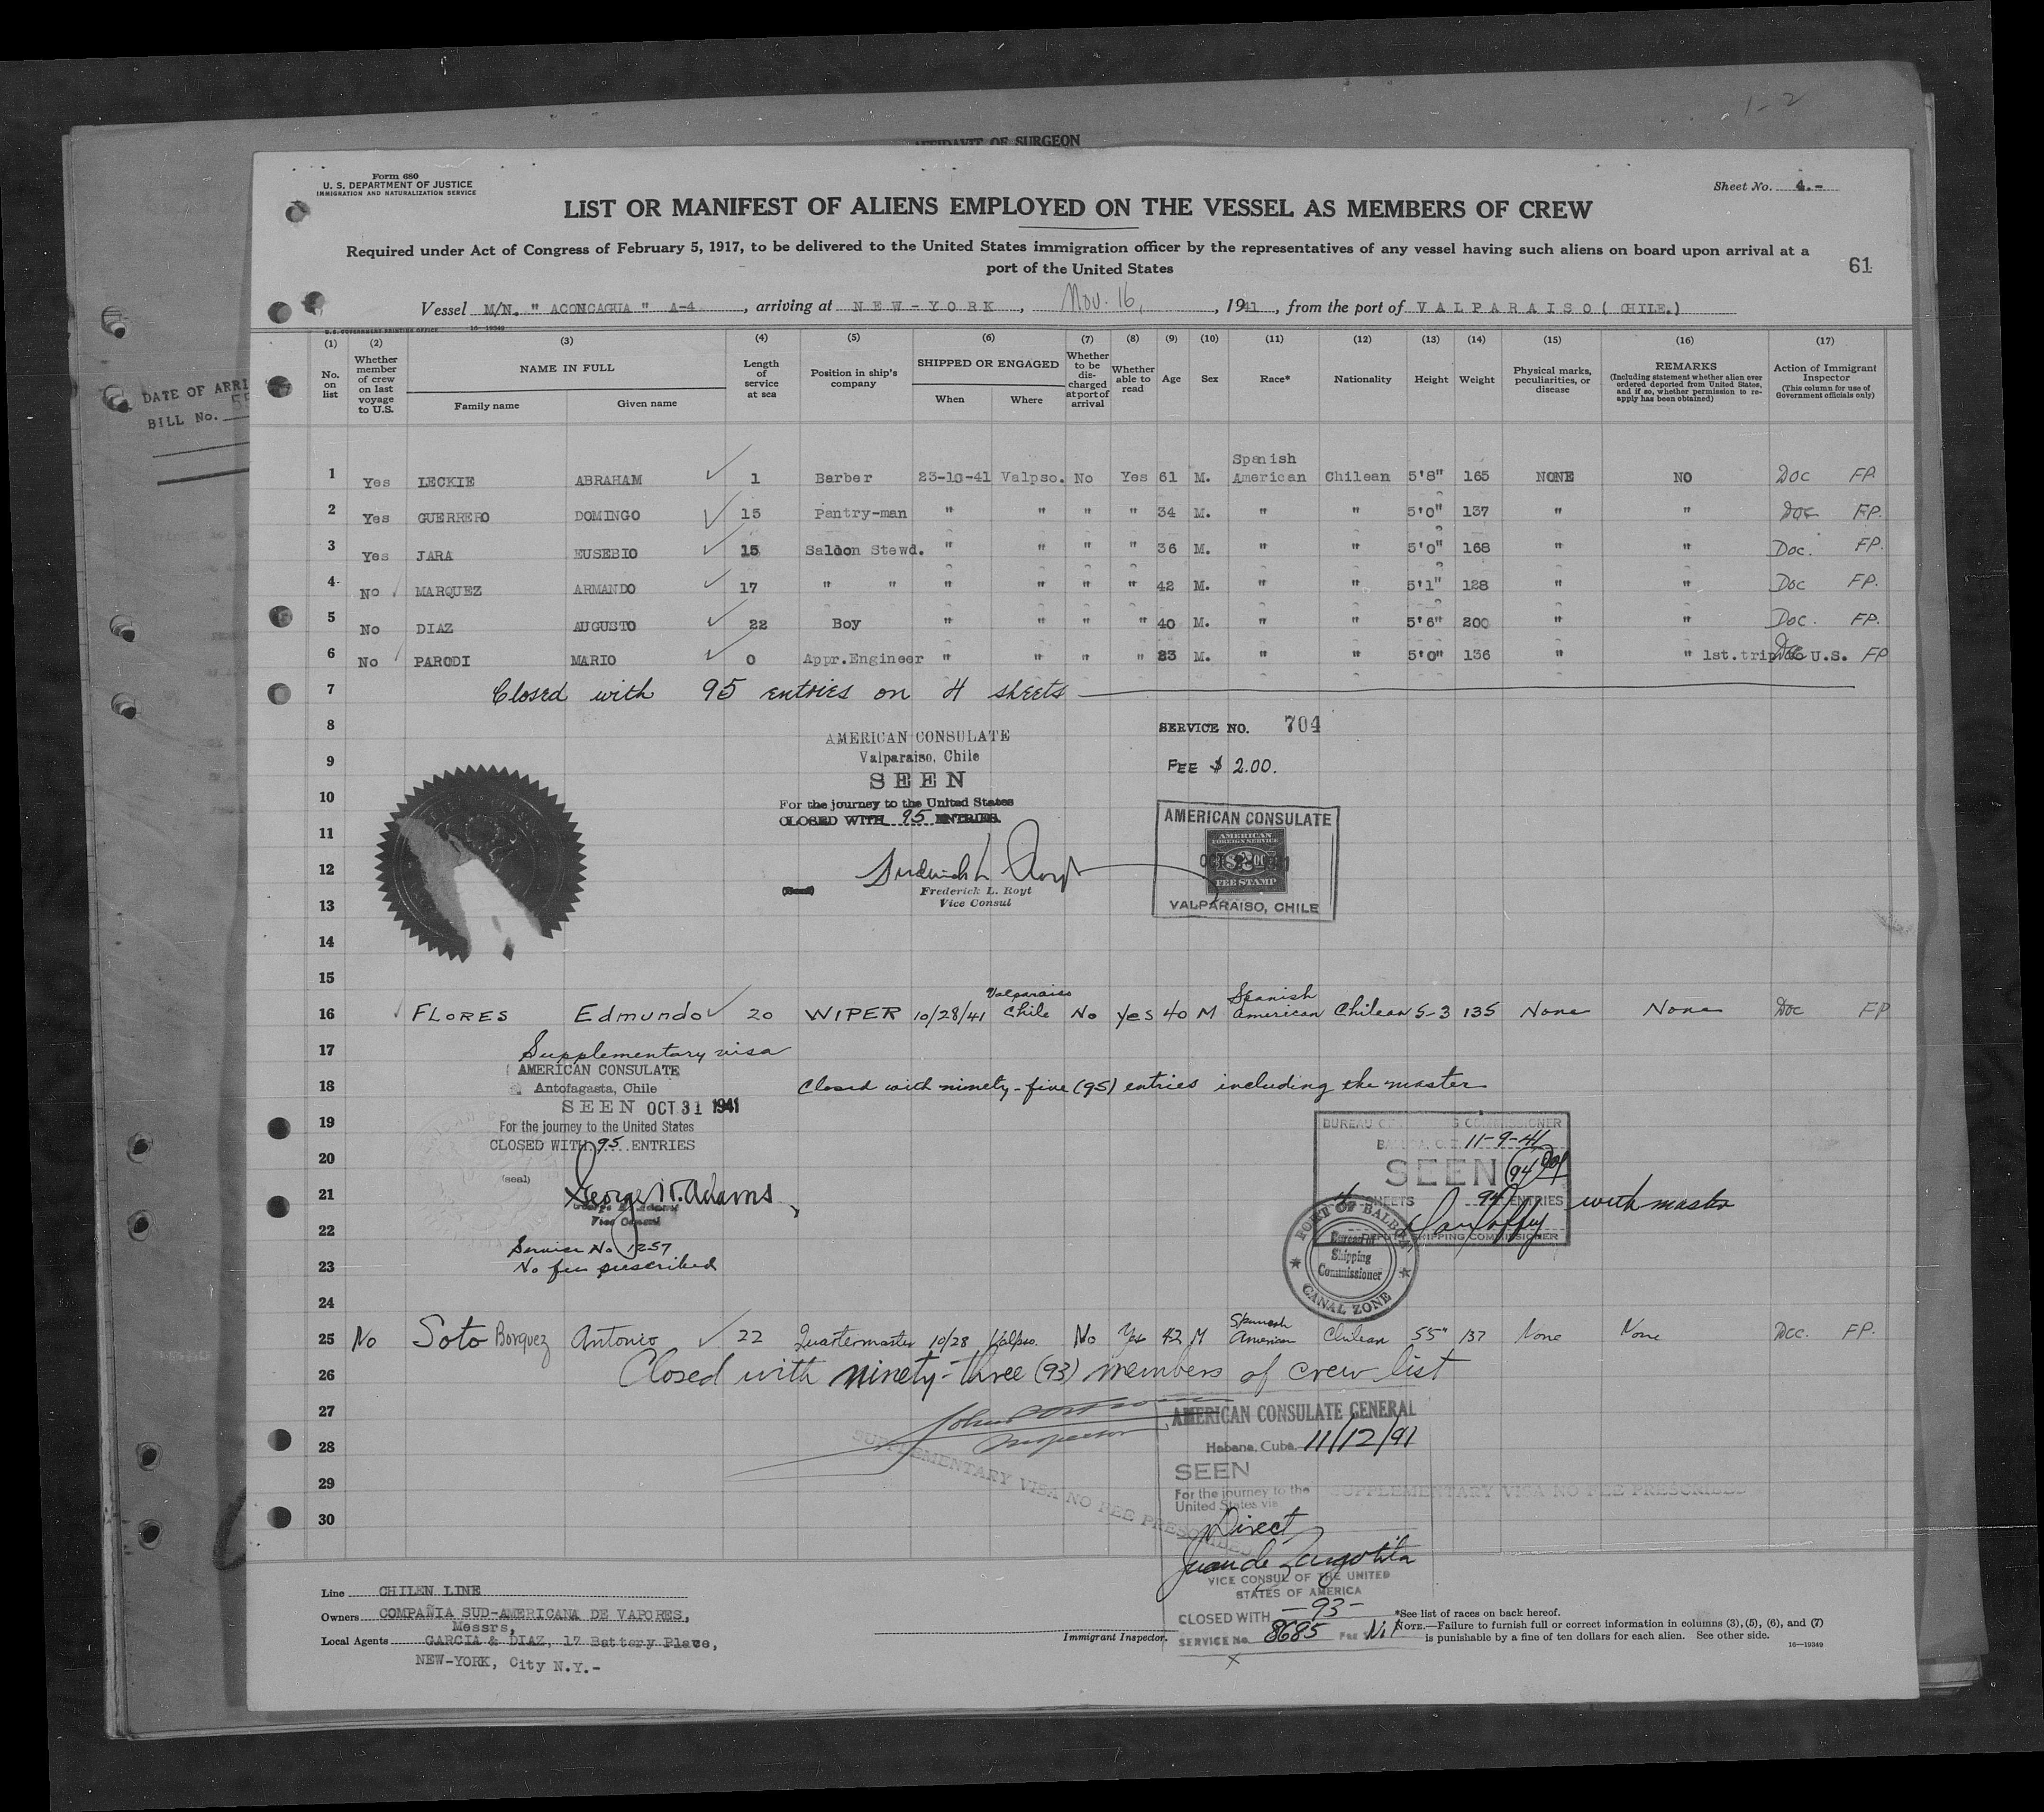 1-2
AFFIDAVIT OF SURGEON
DATE OF ARRI
BILL No.
Form 680
U. S. DEPARTMENT OF JUSTICE
IMMIGRATION AND NATURALIZATION SERVICE
Sheet No. 4.-
LIST OR MANIFEST OF ALIENS EMPLOYED ON THE VESSEL AS MEMBERS OF CREW
Required under Act of Congress of February 5, 1917, to be delivered to the United States immigration officer by the representatives of any vessel having such aliens on board upon arrival at a
port of the United States
61
Vessel M/N. " ACONCAGUA " A-4, arriving at NEW-YORK, Nov. 16, 1941, from the port of VALPARAISO ( CHILE.)
U.S. GOVERNMENT PRINTING OFFICE 16—19349
(1) (2) (3) (4) (5) (6) (7) (8) (9) (10) (11) (12) (13) (14) (15) (16) (17)
No. on list
Whether member of crew on last voyage to U.S.
NAME IN FULL
Family name Given name
Length of service at sea
Position in ship's company
SHIPPED OR ENGAGED
When Where
Whether to be discharged at port of arrival
Whether able to read
Age
Sex
Race*
Nationality
Height
Weight
Physical marks, peculiarities, or disease
REMARKS
(Including statement whether alien ever ordered deported from United States, and if so, whether permission to reapply has been obtained)
Action of Immigrant Inspector
(This column for use of Government officials only)
1 Yes LECKIE ABRAHAM ✓ 1 Barber 23-10-41 Valpso. No Yes 61 M. Spanish American Chilean 5'8" 165 NONE NO Doc FP.
2 Yes GUERRERO DOMINGO ✓ 15 Pantry-man " " " " 34 M. " " 5'0" 137 " " Doc FP.
3 Yes JARA EUSEBIO ✓ 15 Saloon Stewd. " " " " 36 M. " " 5'0" 168 " " Doc. FP.
4 No MARQUEZ ARMANDO ✓ 17 " " " " " " 42 M. " " 5'1" 128 " " Doc FP.
5 No DIAZ AUGUSTO ✓ 22 Boy " " " " 40 M. " " 5'6" 200 " " Doc. FP.
6 No PARODI MARIO ✓ 0 Appr.Engineer " " " " 23 M. " " 5'0" 136 " " 1st.trip to U.S. Doc FP
7 Closed with 95 entries on 4 sheets
8
AMERICAN CONSULATE
SERVICE NO. 704
9
Valparaiso, Chile
SEEN
FEE $ 2.00.
10
For the journey to the United States
11
CLOSED WITH 95 ENTRIES
AMERICAN CONSULATE
AMERICAN
FOREIGN SERVICE
12
$2.00
FEE STAMP
(Seal)
Frederick L. Royt
Vice Consul
13
VALPARAISO, CHILE
14
15
16 FLORES Edmundo ✓ 20 WIPER 10/28/41 Valparaiso Chile No Yes 40 M Spanish American Chilean 5-3 135 None None Doc FP
17 Supplementary visa
AMERICAN CONSULATE
18 Antofagasta, Chile
Closed with ninety-five (95) entries including the master
SEEN OCT 31 1941
19 For the journey to the United States
CLOSED WITH 95 ENTRIES
20
(seal)
21 George W. Adams
Vice Consul
22
Service No 1257
23 No fee prescribed
S COMMISSIONER
11-9-41
SEEN 94
4 SHEETS 94 ENTRIES with master
SHIPPING COMMISSIONER
PORT OF BALBOA
Bureau of
Shipping
Commissioner
CANAL ZONE
24
25 No Soto Borquez Antonio ✓ 22 Quartermaster 10/28 Valpso. No Yes 42 M Spanish American Chilean 55" 137 None None Doc. FP.
26 Closed with ninety-three (93) members of crew list
27
Inspector
AMERICAN CONSULATE GENERAL
28
Habana, Cuba, 11/12/41
SEEN
29
For the journey to the
United States via
SUPPLEMENTARY VISA NO FEE PRESCRIBED
SUPPLEMENTARY VISA NO FEE PRESCRIBED
30
Direct
VICE CONSUL OF THE UNITED
STATES OF AMERICA
CLOSED WITH -93-
SERVICE No. 8685 FEE Nil
x
Line CHILEN LINE
Owners COMPAÑIA SUD-AMERICANA DE VAPORES,
Messrs,
Local Agents GARCIA & DIAZ, 17 Battery Place,
NEW-YORK, City N.Y.-
Immigrant Inspector.
*See list of races on back hereof.
NOTE.—Failure to furnish full or correct information in columns (3), (5), (6), and (7)
is punishable by a fine of ten dollars for each alien. See other side.
16—19349